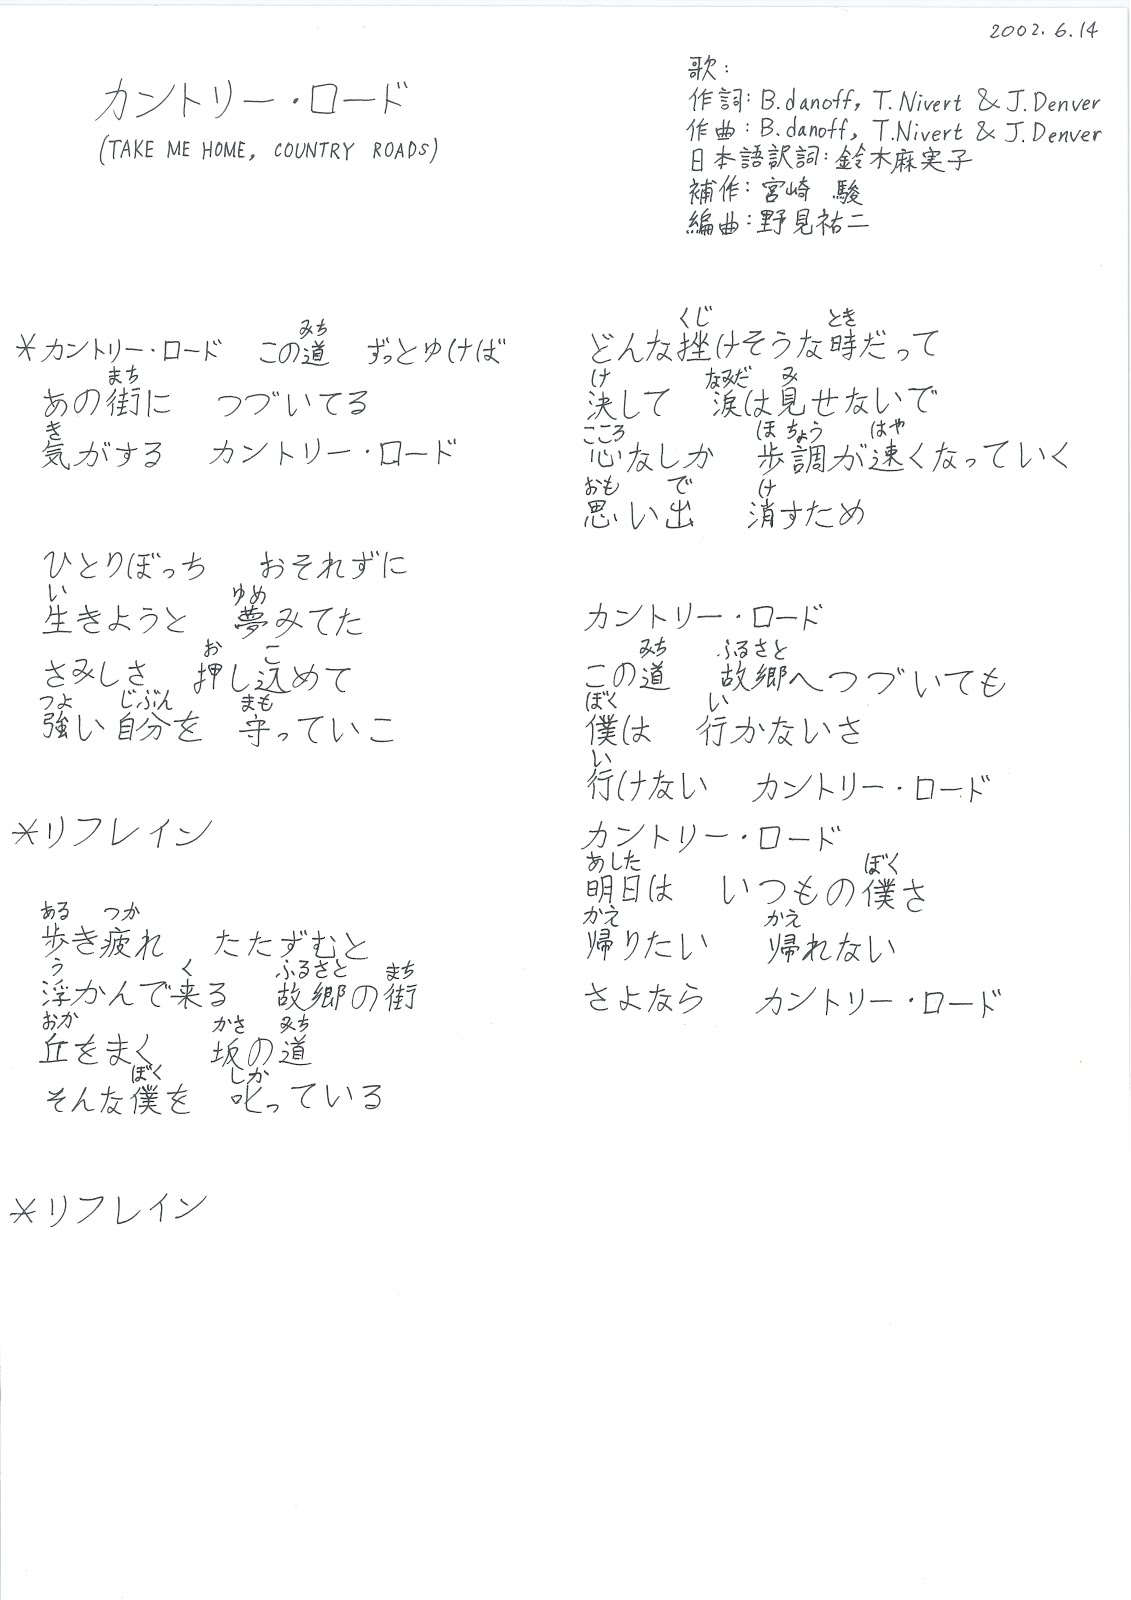 2002.6.14
カントリー・ロード
(TAKE ME HOME, COUNTRY ROADS)
歌:
作詞: B.danoff, T.Nivert & J.Denver
作曲: B.danoff, T.Nivert & J.Denver
日本語訳詞: 鈴木麻実子
補作: 宮崎 駿
編曲: 野見祐二
みち
*カントリー・ロード この道 ずっとゆけば
まち
あの街に つづいてる
き
気がする カントリー・ロード
ひとりぼっち おそれずに
い ゆめ
生きようと 夢みてた
お こ
さみしさ 押し込めて
つよ じぶん まも
強い自分を 守っていこ
*リフレイン
ある つか
歩き疲れ たたずむと
う く ふるさと まち
浮かんで来る 故郷の街
おか かさ みち
丘をまく 坂の道
ぼく しか
そんな僕を 叱っている
*リフレイン
くじ とき
どんな挫けそうな時だって
け なみだ み
決して 涙は見せないで
こころ ほちょう はや
心なしか 歩調が速くなっていく
おも で け
思い出 消すため
カントリー・ロード
みち ふるさと
この道 故郷へつづいても
ぼく い
僕は 行かないさ
い
行けない カントリー・ロード
カントリー・ロード
あした ぼく
明日は いつもの僕さ
かえ かえ
帰りたい 帰れない
さよなら カントリー・ロード